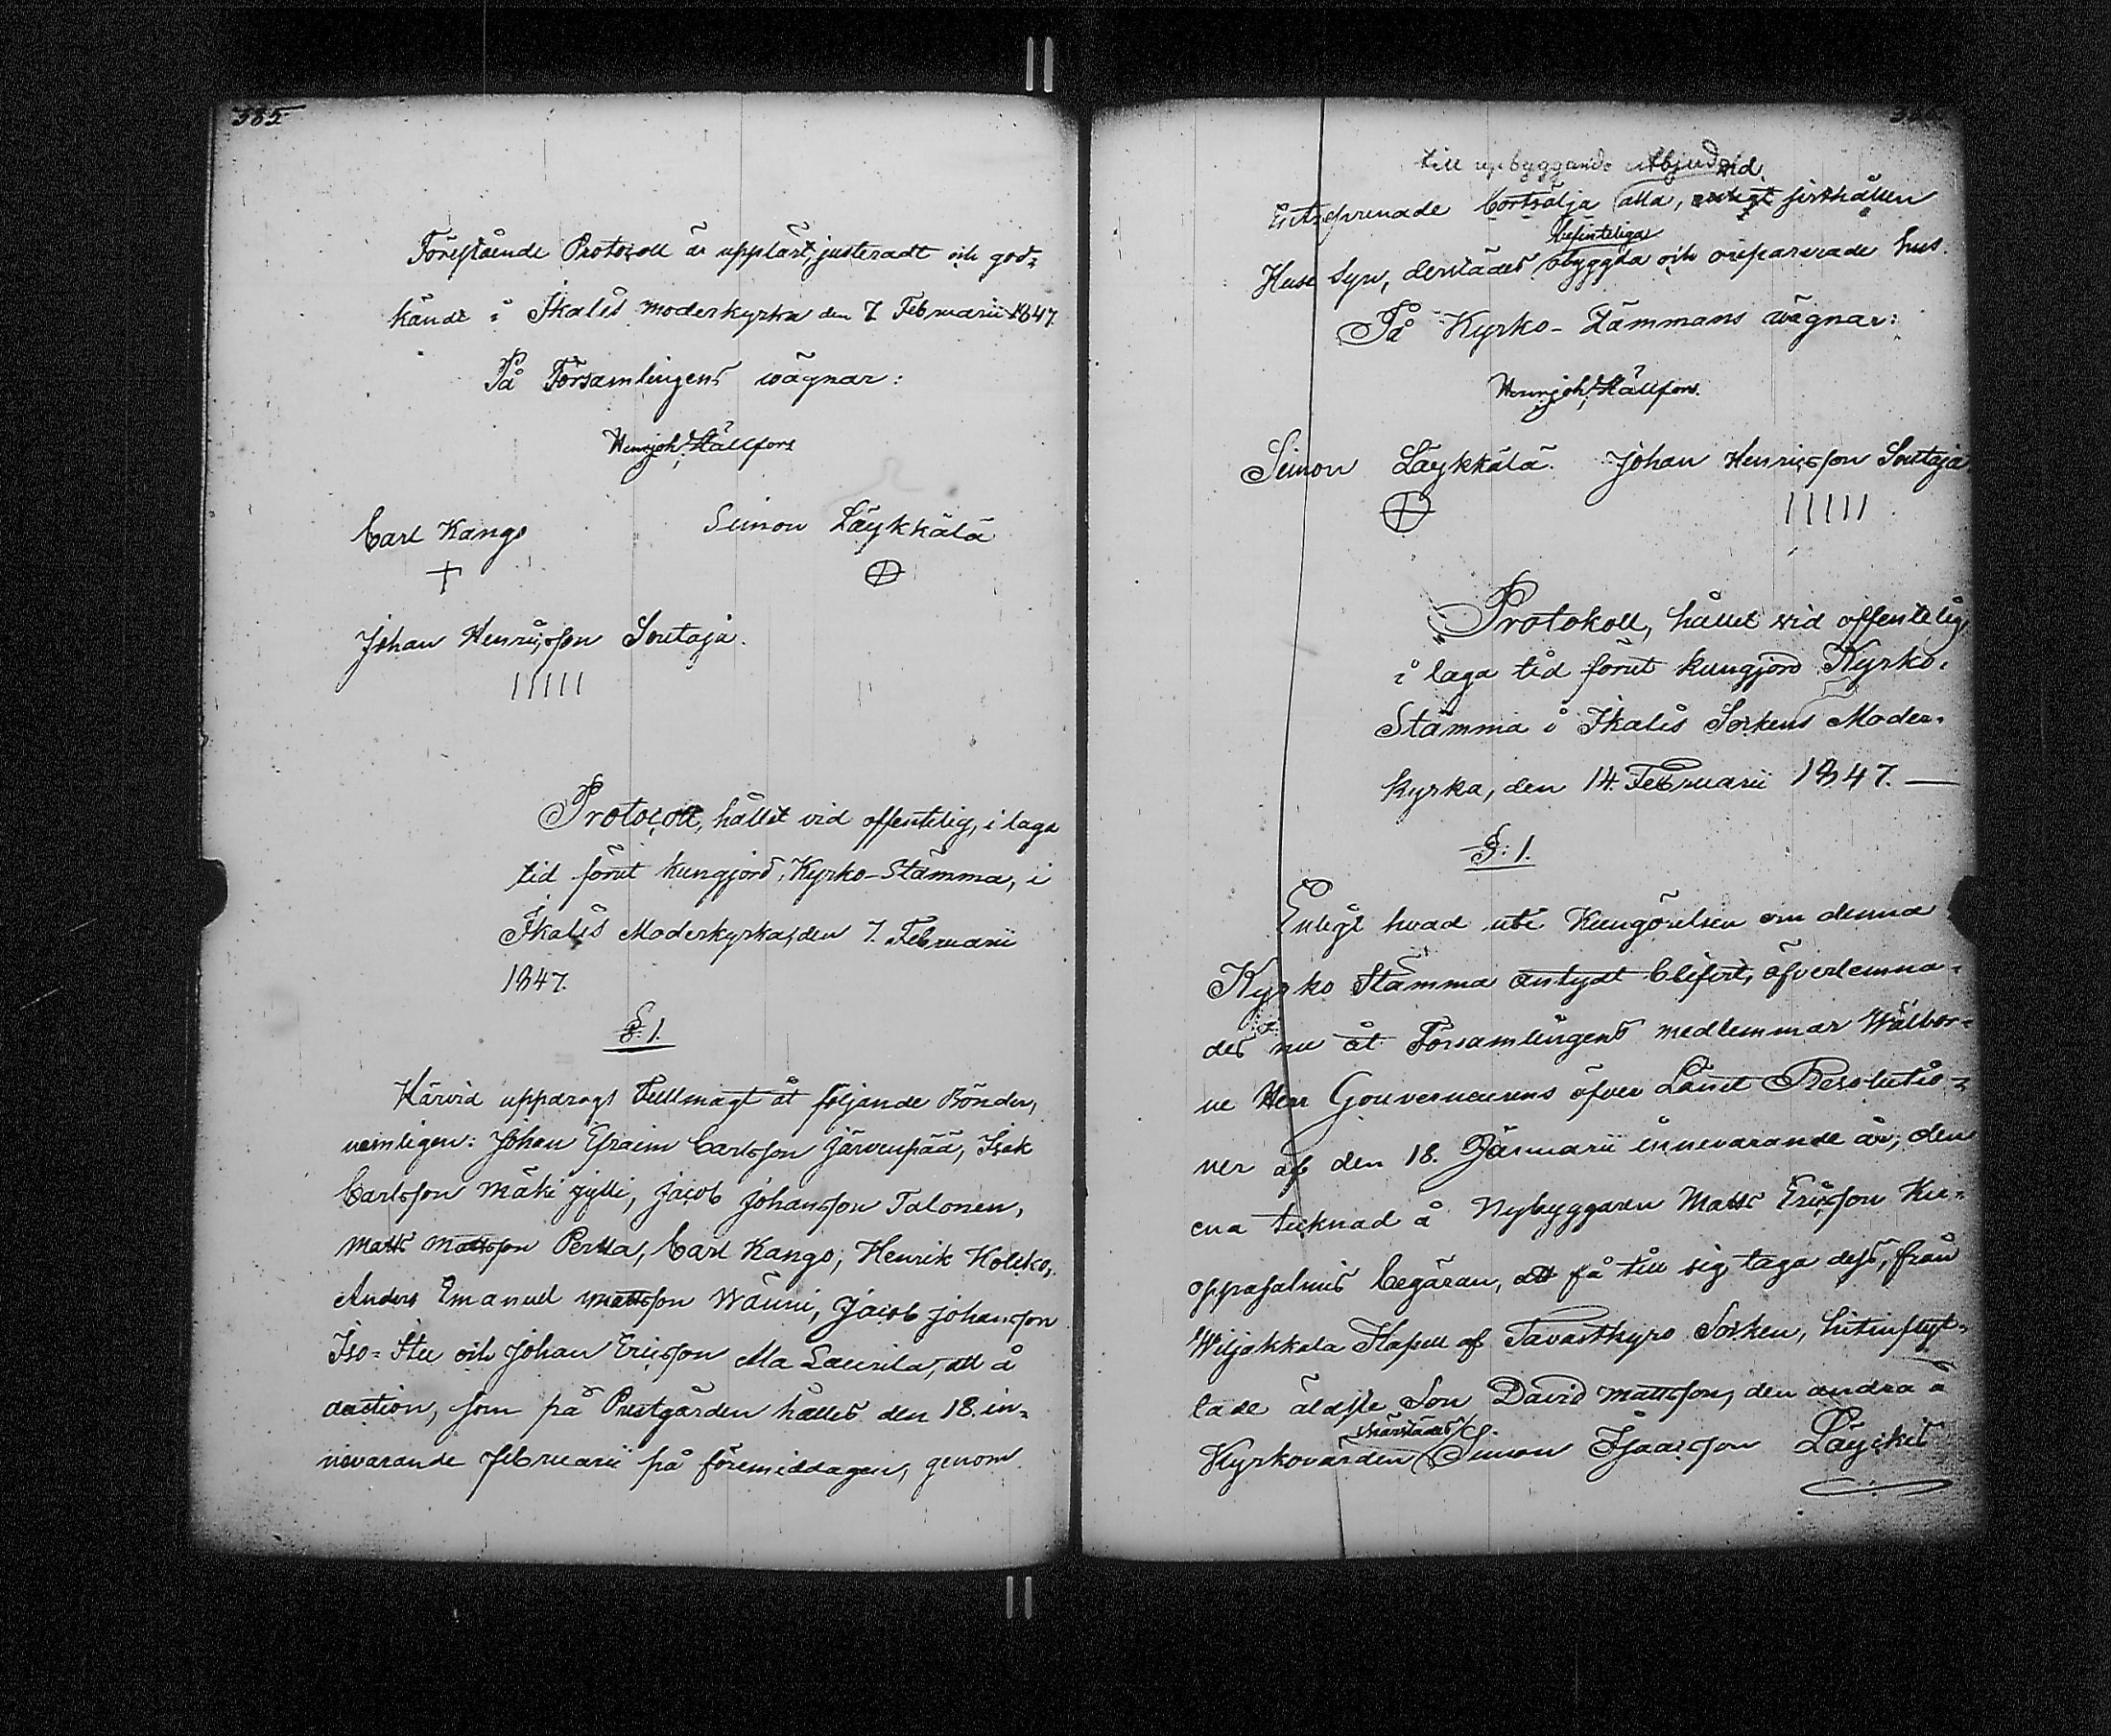 385
Föreståendi Protocoll är uppläst, justeradt och god-
kändt i Ikalis moderkyrka den 7 Februarii 1847.
På Församlingens wägnar:
Henrjoh: Hällfors
Carl Kango Simon Läykkälä
Johan Henricsson Soutaja.
Protocoll, hållet vid offentelig, i laga
tid förut kungjord, Kyrko-Stämma, i
Ikalis Moderkyrka, den 7. Februarii
1847.
§. 1.
Härvid uppdrogs Fullmagt åt följande Bönder,
nemligen: Johan Efraim Carlsson Järvenpää, Isak
Carlsson Mäki jylli, Jacob Johansson Talonen,
Matts Mattsson Perlla, Carl Kango, Henrik Holcko,
Anders Emanuel Mattsson Wänni, Jacob Johansson
Iso-Iku och Johan Ericsson Ala Laurila, att å
auction, som på Prestgården hålles den 18. in-
nevarande Februarii på föremiddagen, genom
till upbyggande utbjuda vid
Entreprenade bortsälja alla, enligt sisthållen
befinteliga
Huse Syn, derstädes obyggda och oreparerade hus.
På Kyrko-Stämmans wägnar:
Henrjoh: Hällfors.
Simon Läykkälä. Johan Henricsson Soutaja
Protokoll, hållet vid offentelig,
i laga tid förut kungjord Kyrko-
Stämma i Ikalis Sockens Moder-
kyrka, den 14. Februarii 1847. —
§: 1.
Enligt hvad uti Kungörelsen om denna
Kyrko Stämma antydt blifvit, öfverlemna-
des nu åt Församlingens medlemmar Wälbor-
ne Herr Gouverneurens öfver Länet Resolutio-
ner af den 18. Januarii innevarande år, den
ena tecknad å Nybyggaren Matts Ericsson Ku-
oppasalmis begäran, att få till sig taga dess, från
Wiljakkala Kapell af Tavastkyro Socken, hitinflyt-
tade äldste Son David Mattsson, den andra å
Kyrkovärden Simon Isaacsson Läyckis